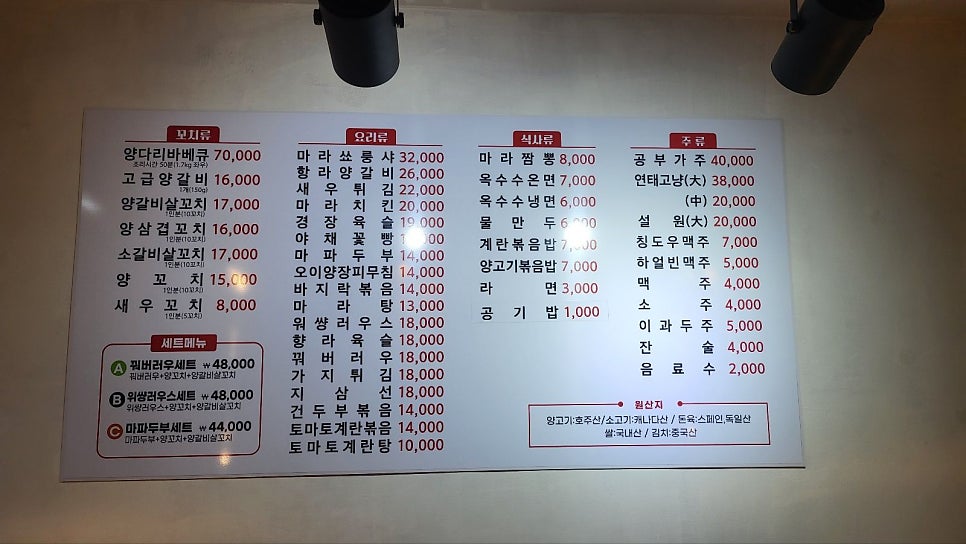 꼬치류
양다리바베큐 70,000
조리시간 50분(1.7kg 좌우)
고급양갈비 16,000
1개(150g)
양갈비살꼬치 17,000
1인분(10꼬치)
양삼겹꼬치 16,000
1인분(10꼬치)
소갈비살꼬치 17,000
1인분(10꼬치)
양꼬치 15,000
1인분(10꼬치)
새우꼬치 8,000
1인분(5꼬치)
세트메뉴
A 꿔버러우세트 ₩48,000
꿔버러우+양꼬치+양갈비살꼬치
B 워쌍러우스세트 ₩48,000
위쌍러우스+양꼬치+양갈비살꼬치
C 마파두부세트 ₩44,000
마파두부+양꼬치+양갈비살꼬치
요리류
마라쑈룽샤 32,000
향라양갈비 26,000
새우튀김 22,000
마라치킨 20,000
경장육슬 19,000
야채꽃빵
마파두부 14,000
오이양장피무침 14,000
바지락볶음 14,000
마라탕 13,000
워쌍러우스 18,000
향라육슬 18,000
꿔버러우 18,000
가지튀김 18,000
지삼선 18,000
건두부볶음 14,000
토마토계란볶음 14,000
토마토계란탕 10,000
식사류
마라짬뽕 8,000
옥수수온면 7,000
옥수수냉면 6,000
물만두 6,000
계란볶음밥 7,000
양고기볶음밥 7,000
라면 3,000
공기밥 1,000
주류
공부가주 40,000
연태고냥(大) 38,000
(中) 20,000
설원(大) 20,000
칭도우맥주 7,000
하얼빈맥주 5,000
맥주 4,000
소주 4,000
이과두주 5,000
잔술 4,000
음료수 2,000
원산지
양고기:호주산/소고기:캐나다산 / 돈육:스페인,독일산
쌀:국내산 / 김치:중국산